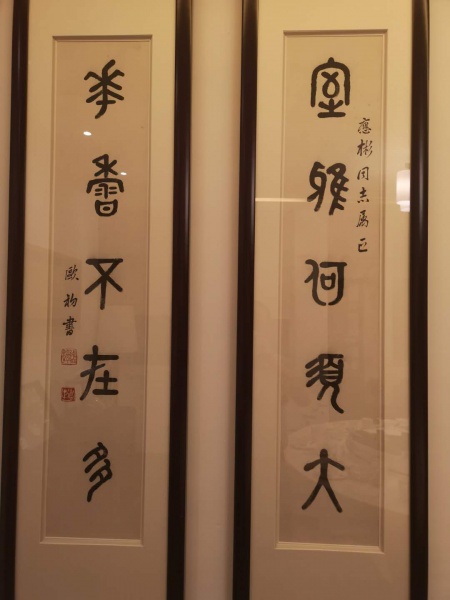 室雅何須大
應彬同志屬正
華香不在多
歐初書